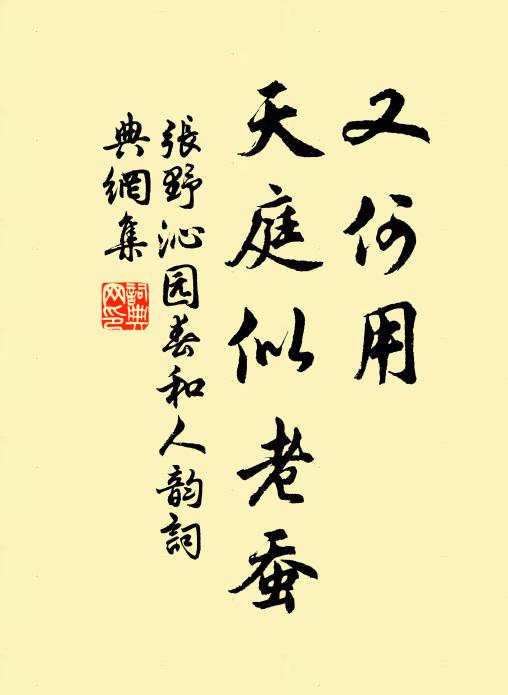 又何用
天庭似老蚕
張野沁园春和人韵詞
典網集
詞典网印